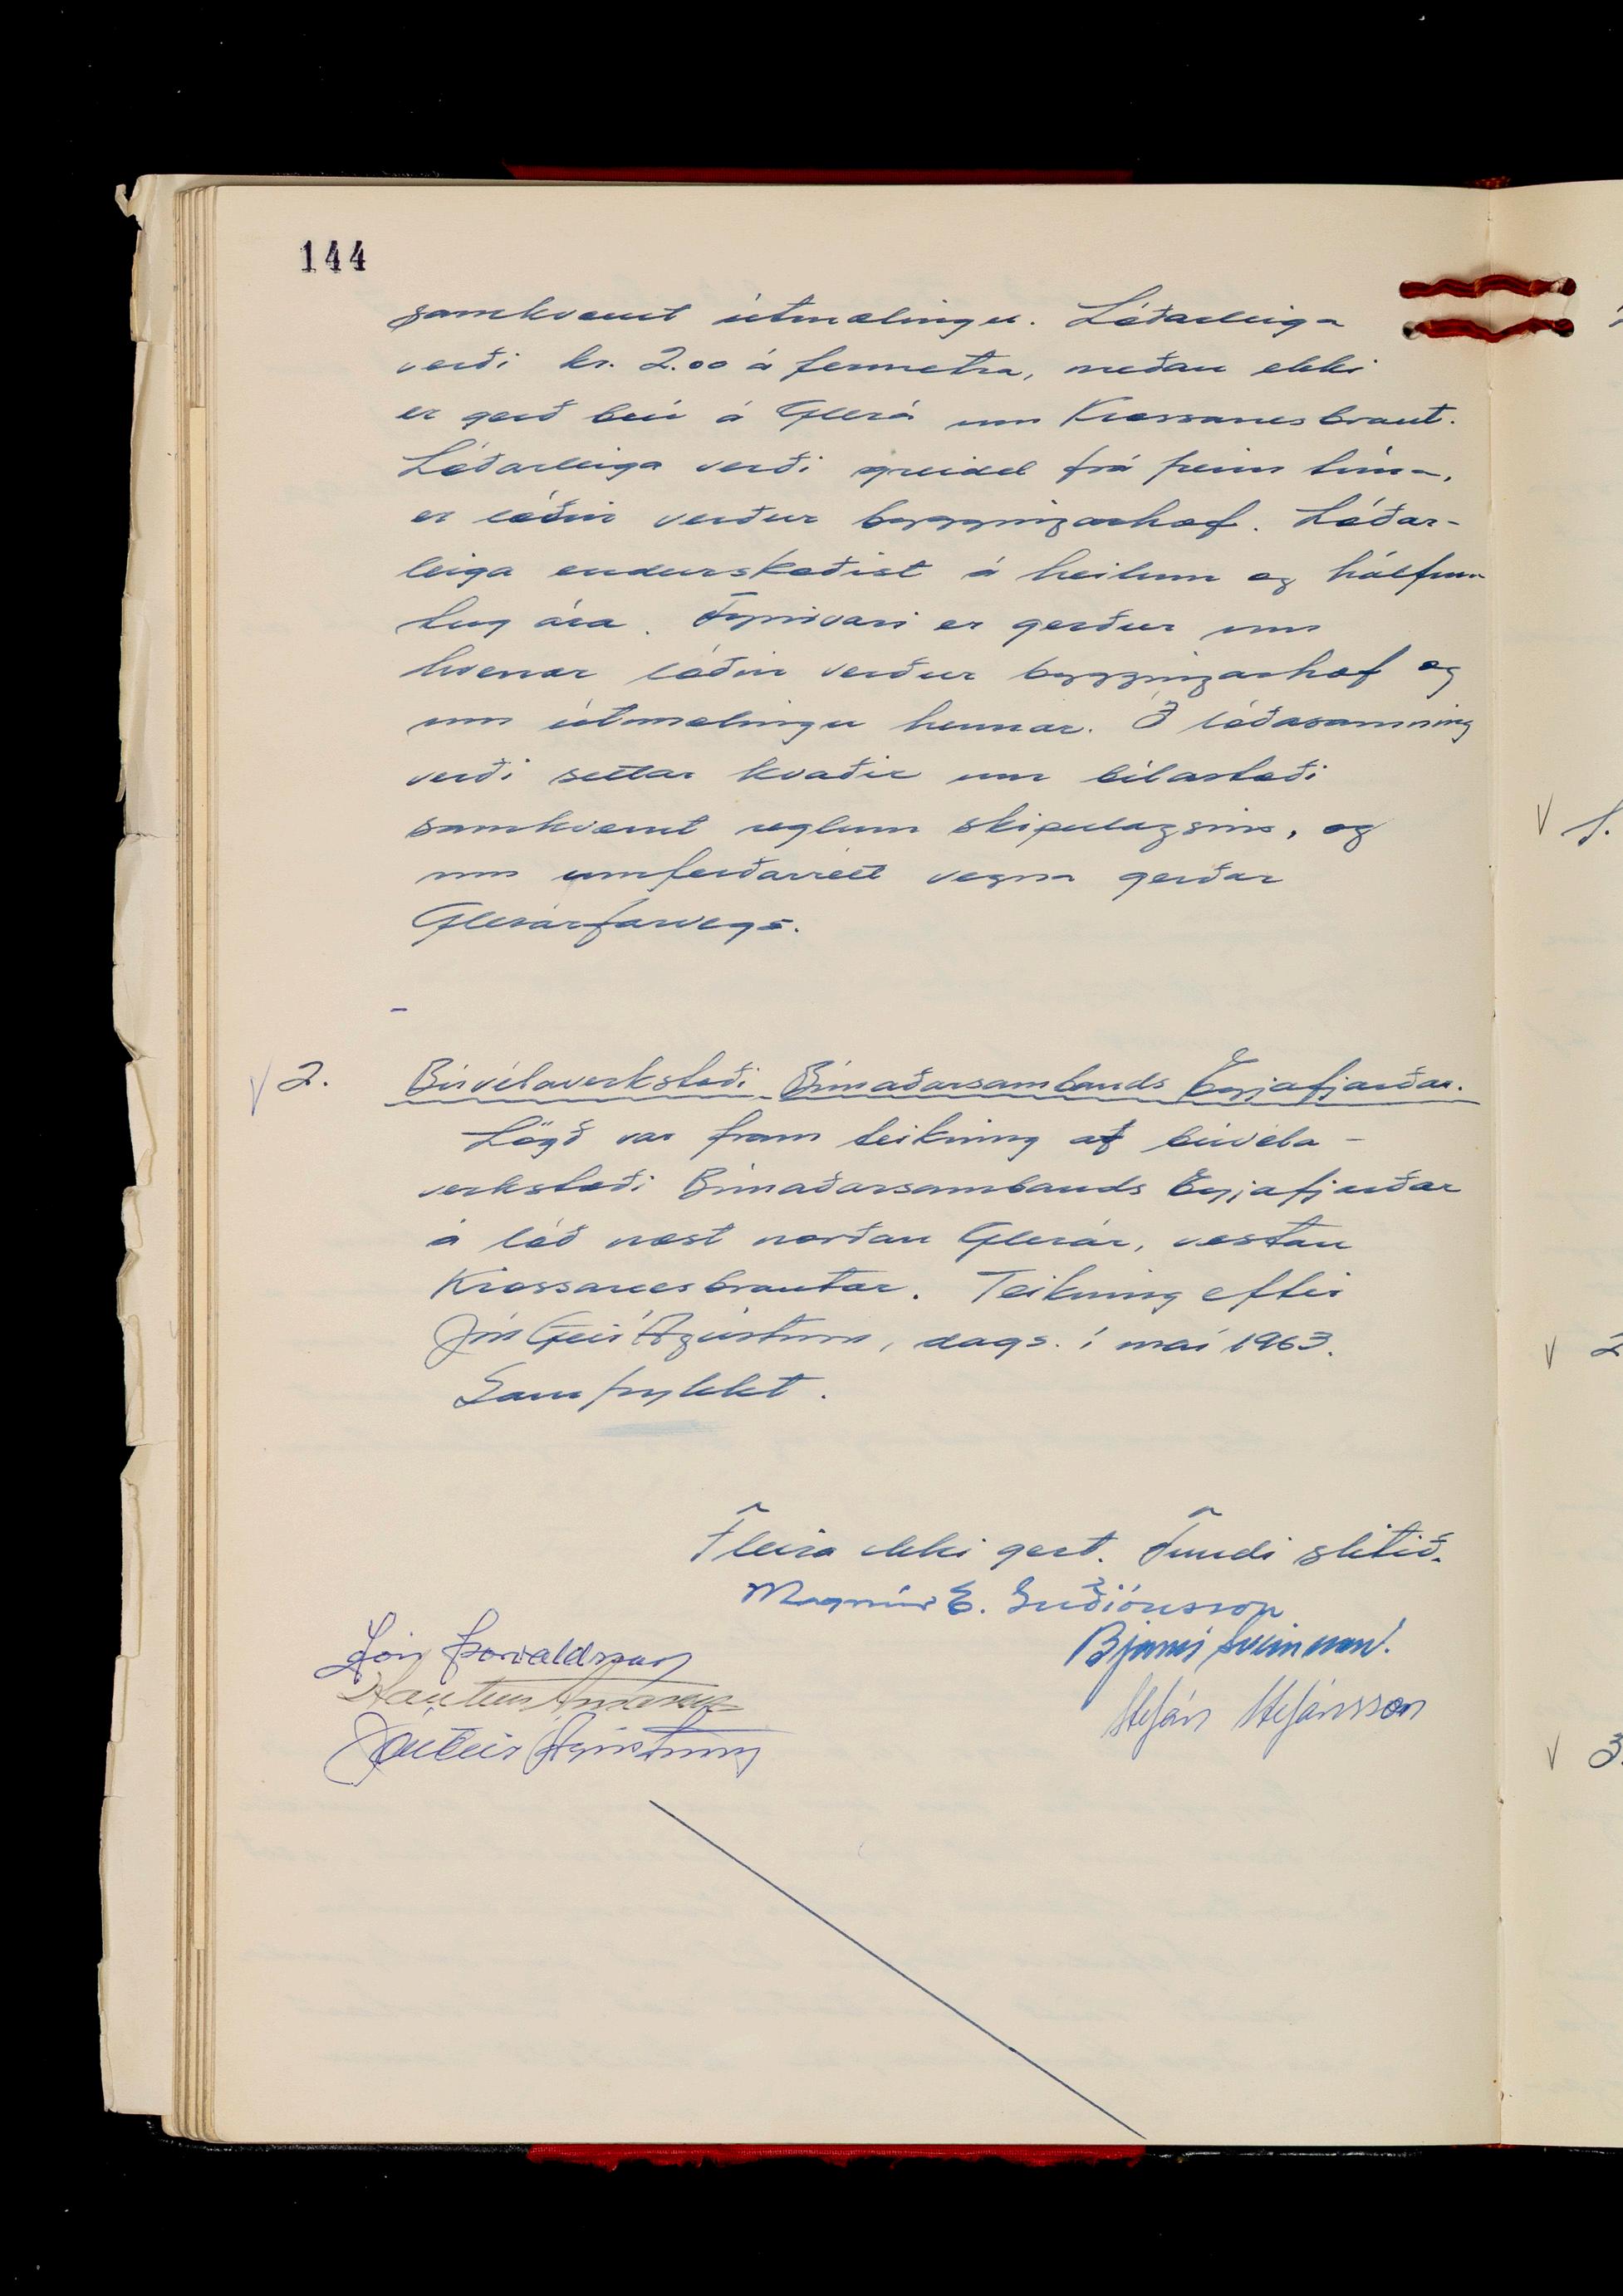 144
samkvæmt útmælingu. Lóðarleiga
verði kr. 2.00 á fermetra, meðan ekki
er gerð brú á Glerá um Krossanesbraut.
Lóðarleiga verði greidd frá þeim tíma,
er lóðin verður byggingarhæf. Lóðar-
leiga endurskoðist á heilum og hálfum
tug ára. Fyrirvari er gerður um
hvenær lóðin verður byggingarhæf og
um útmælingu hennar. Í lóðasamning
verði settar kvaðir um bílastæði
samkvæmt reglum skipulagsins, og
um umferðarrétt vegna gerðar
Glerárfarvegs.
V 2. Búvélaverkstæði Búnaðarsambands Eyjafjarðar.
Lögð var fram teikning af búvéla-
verkstæði Búnaðarsambands Eyjafjarðar
á lóð næst norðan Glerár, vestan
Krossanesbrautar. Teikning eftir
Jón Geir Ágústsson, dags. í maí 1963.
Samþykkt.
Fleira ekki gert. Fundi slitið.
Magnús E. Guðjónsson
Jón Þorvaldsson
Bjarni Sveinsson
Haukur Árnason
Stefán Stefánsson
Jón Geir Ágústsson
V 1.
V 2
V 3.